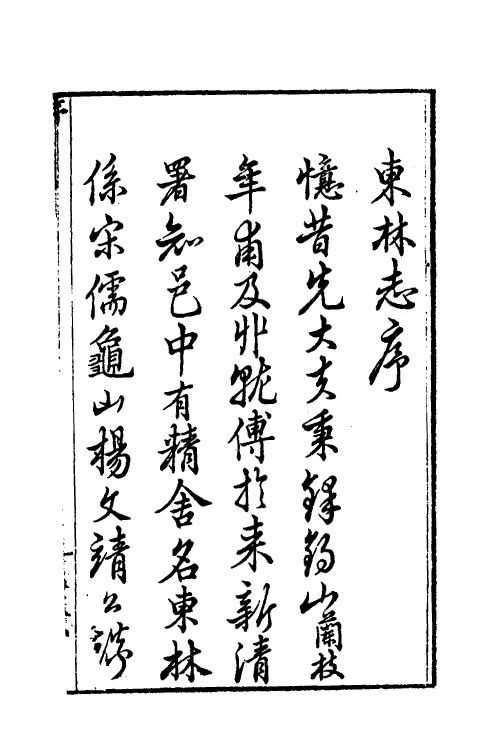 東林志序
憶昔先大夫秉鐸錫山蘭枝
年甫及丱就傅於来新清
署知邑中有精舍名東林
係宋儒龜山楊文靖公講